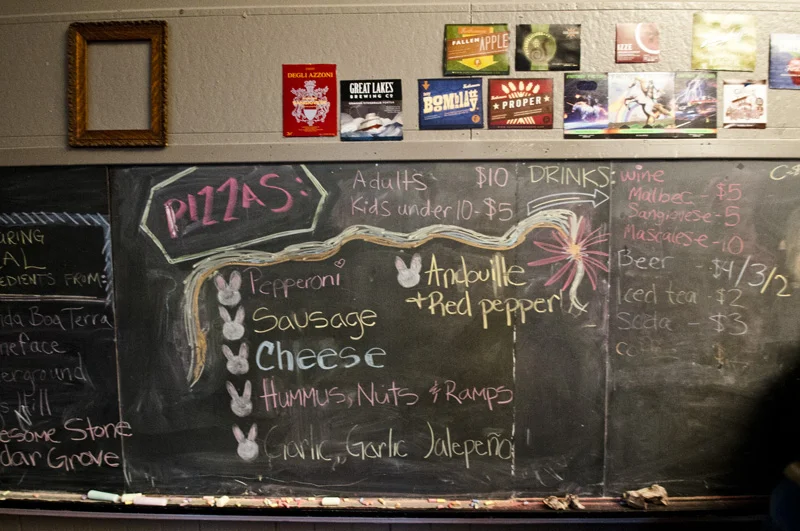 DEGLI AZZONI
GREAT LAKES
BREWING CO
FALLEN APPLE
BOMBAY
PROPER
PIZZAS:
Adults $10
Kids under 10 - $5
DRINKS:
Pepperoni
Sausage
Cheese
Hummus, Nuts & Ramps
Garlic, Garlic Jalepeño
Andouille
+ Red pepper
wine
Malbec - $5
Sangiovese - 5
Beer $4/3/2
Iced tea - $2
Soda - $3
URING
AL
EDIENTS FROM:
ida Boa Terra
neface
erground
s Hill
esome Stone
dar Grove